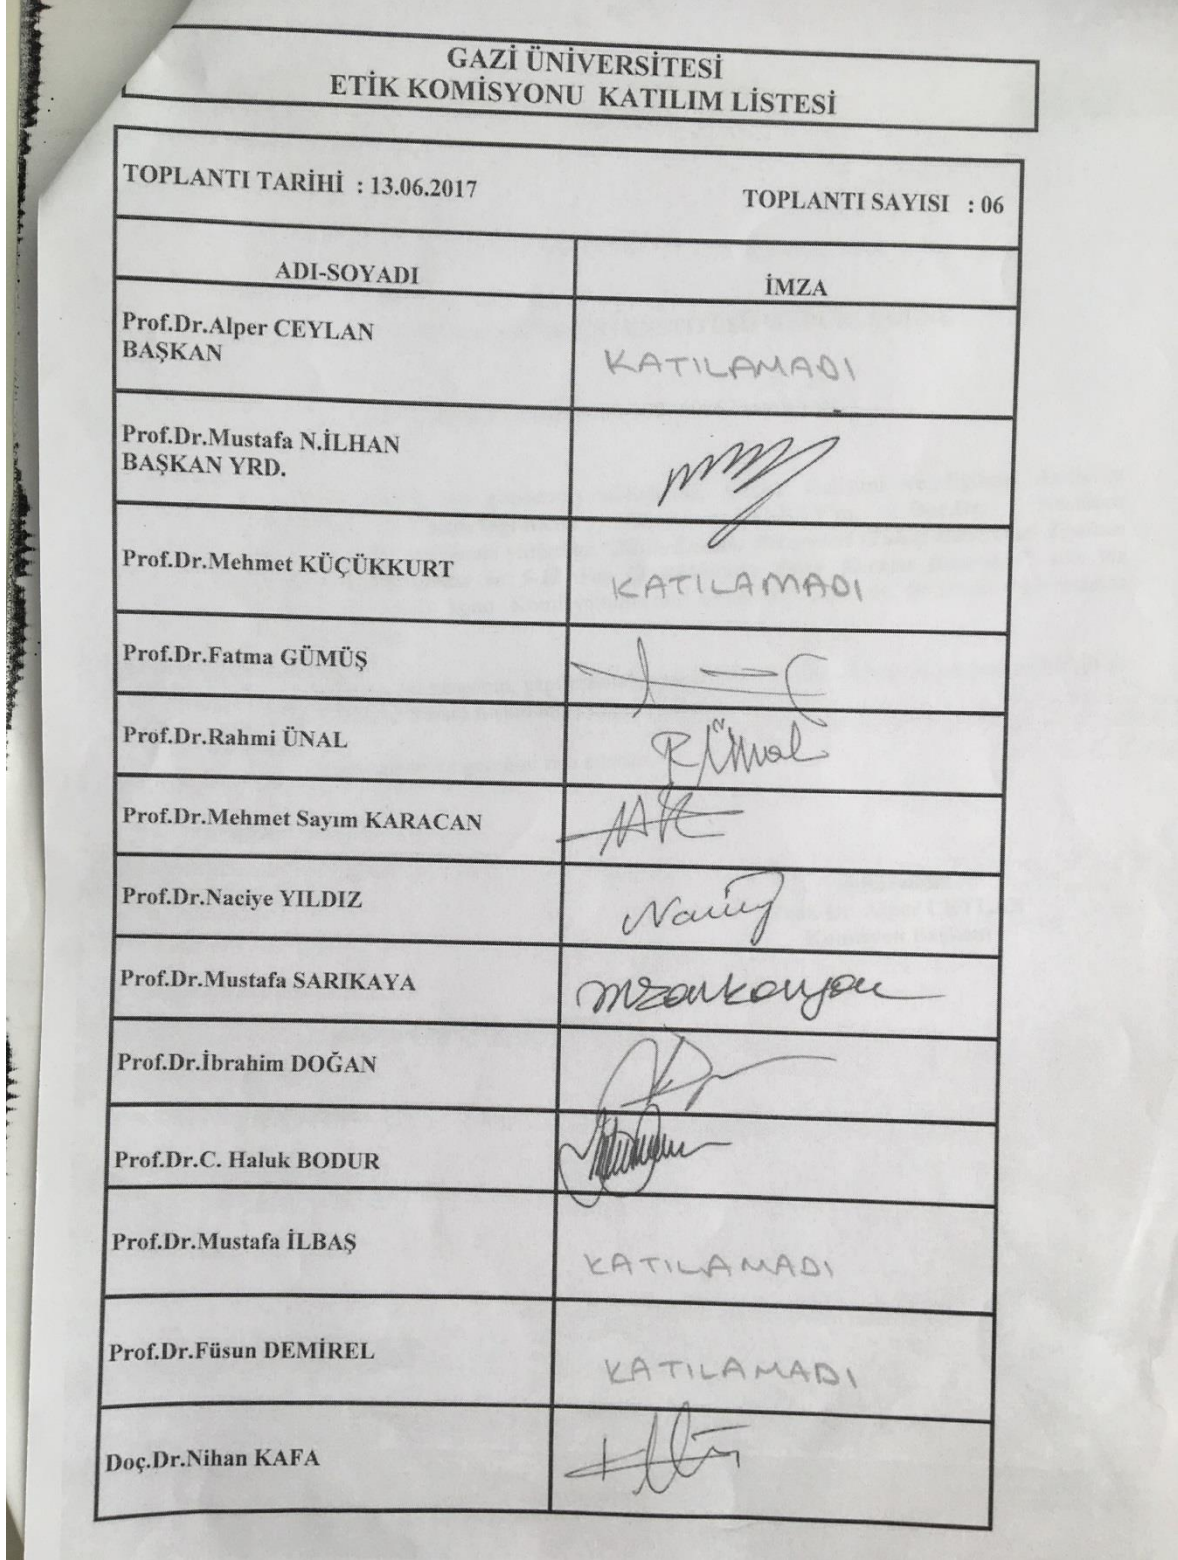 GAZİ ÜNİVERSİTESİ
ETİK KOMİSYONU KATILIM LİSTESİ
TOPLANTI TARİHİ : 13.06.2017
TOPLANTI SAYISI : 06
ADI-SOYADI
İMZA
Prof.Dr.Alper CEYLAN
BAŞKAN
KATILAMADI
Prof.Dr.Mustafa N.İLHAN
BAŞKAN YRD.
Prof.Dr.Mehmet KÜÇÜKKURT
KATILAMADI
Prof.Dr.Fatma GÜMÜŞ
Prof.Dr.Rahmi ÜNAL
R Ünal
Prof.Dr.Mehmet Sayım KARACAN
Prof.Dr.Naciye YILDIZ
Prof.Dr.Mustafa SARIKAYA
Prof.Dr.İbrahim DOĞAN
Prof.Dr.C. Haluk BODUR
Prof.Dr.Mustafa İLBAŞ
KATILAMADI
Prof.Dr.Füsun DEMİREL
KATILAMADI
Doç.Dr.Nihan KAFA